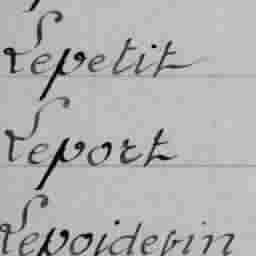 Lepetit
Leport
Lepoidevin